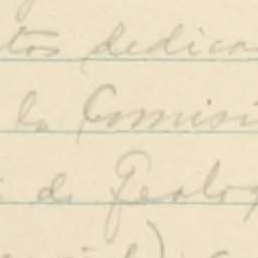 tos dedica
la Comisi
de Geolog